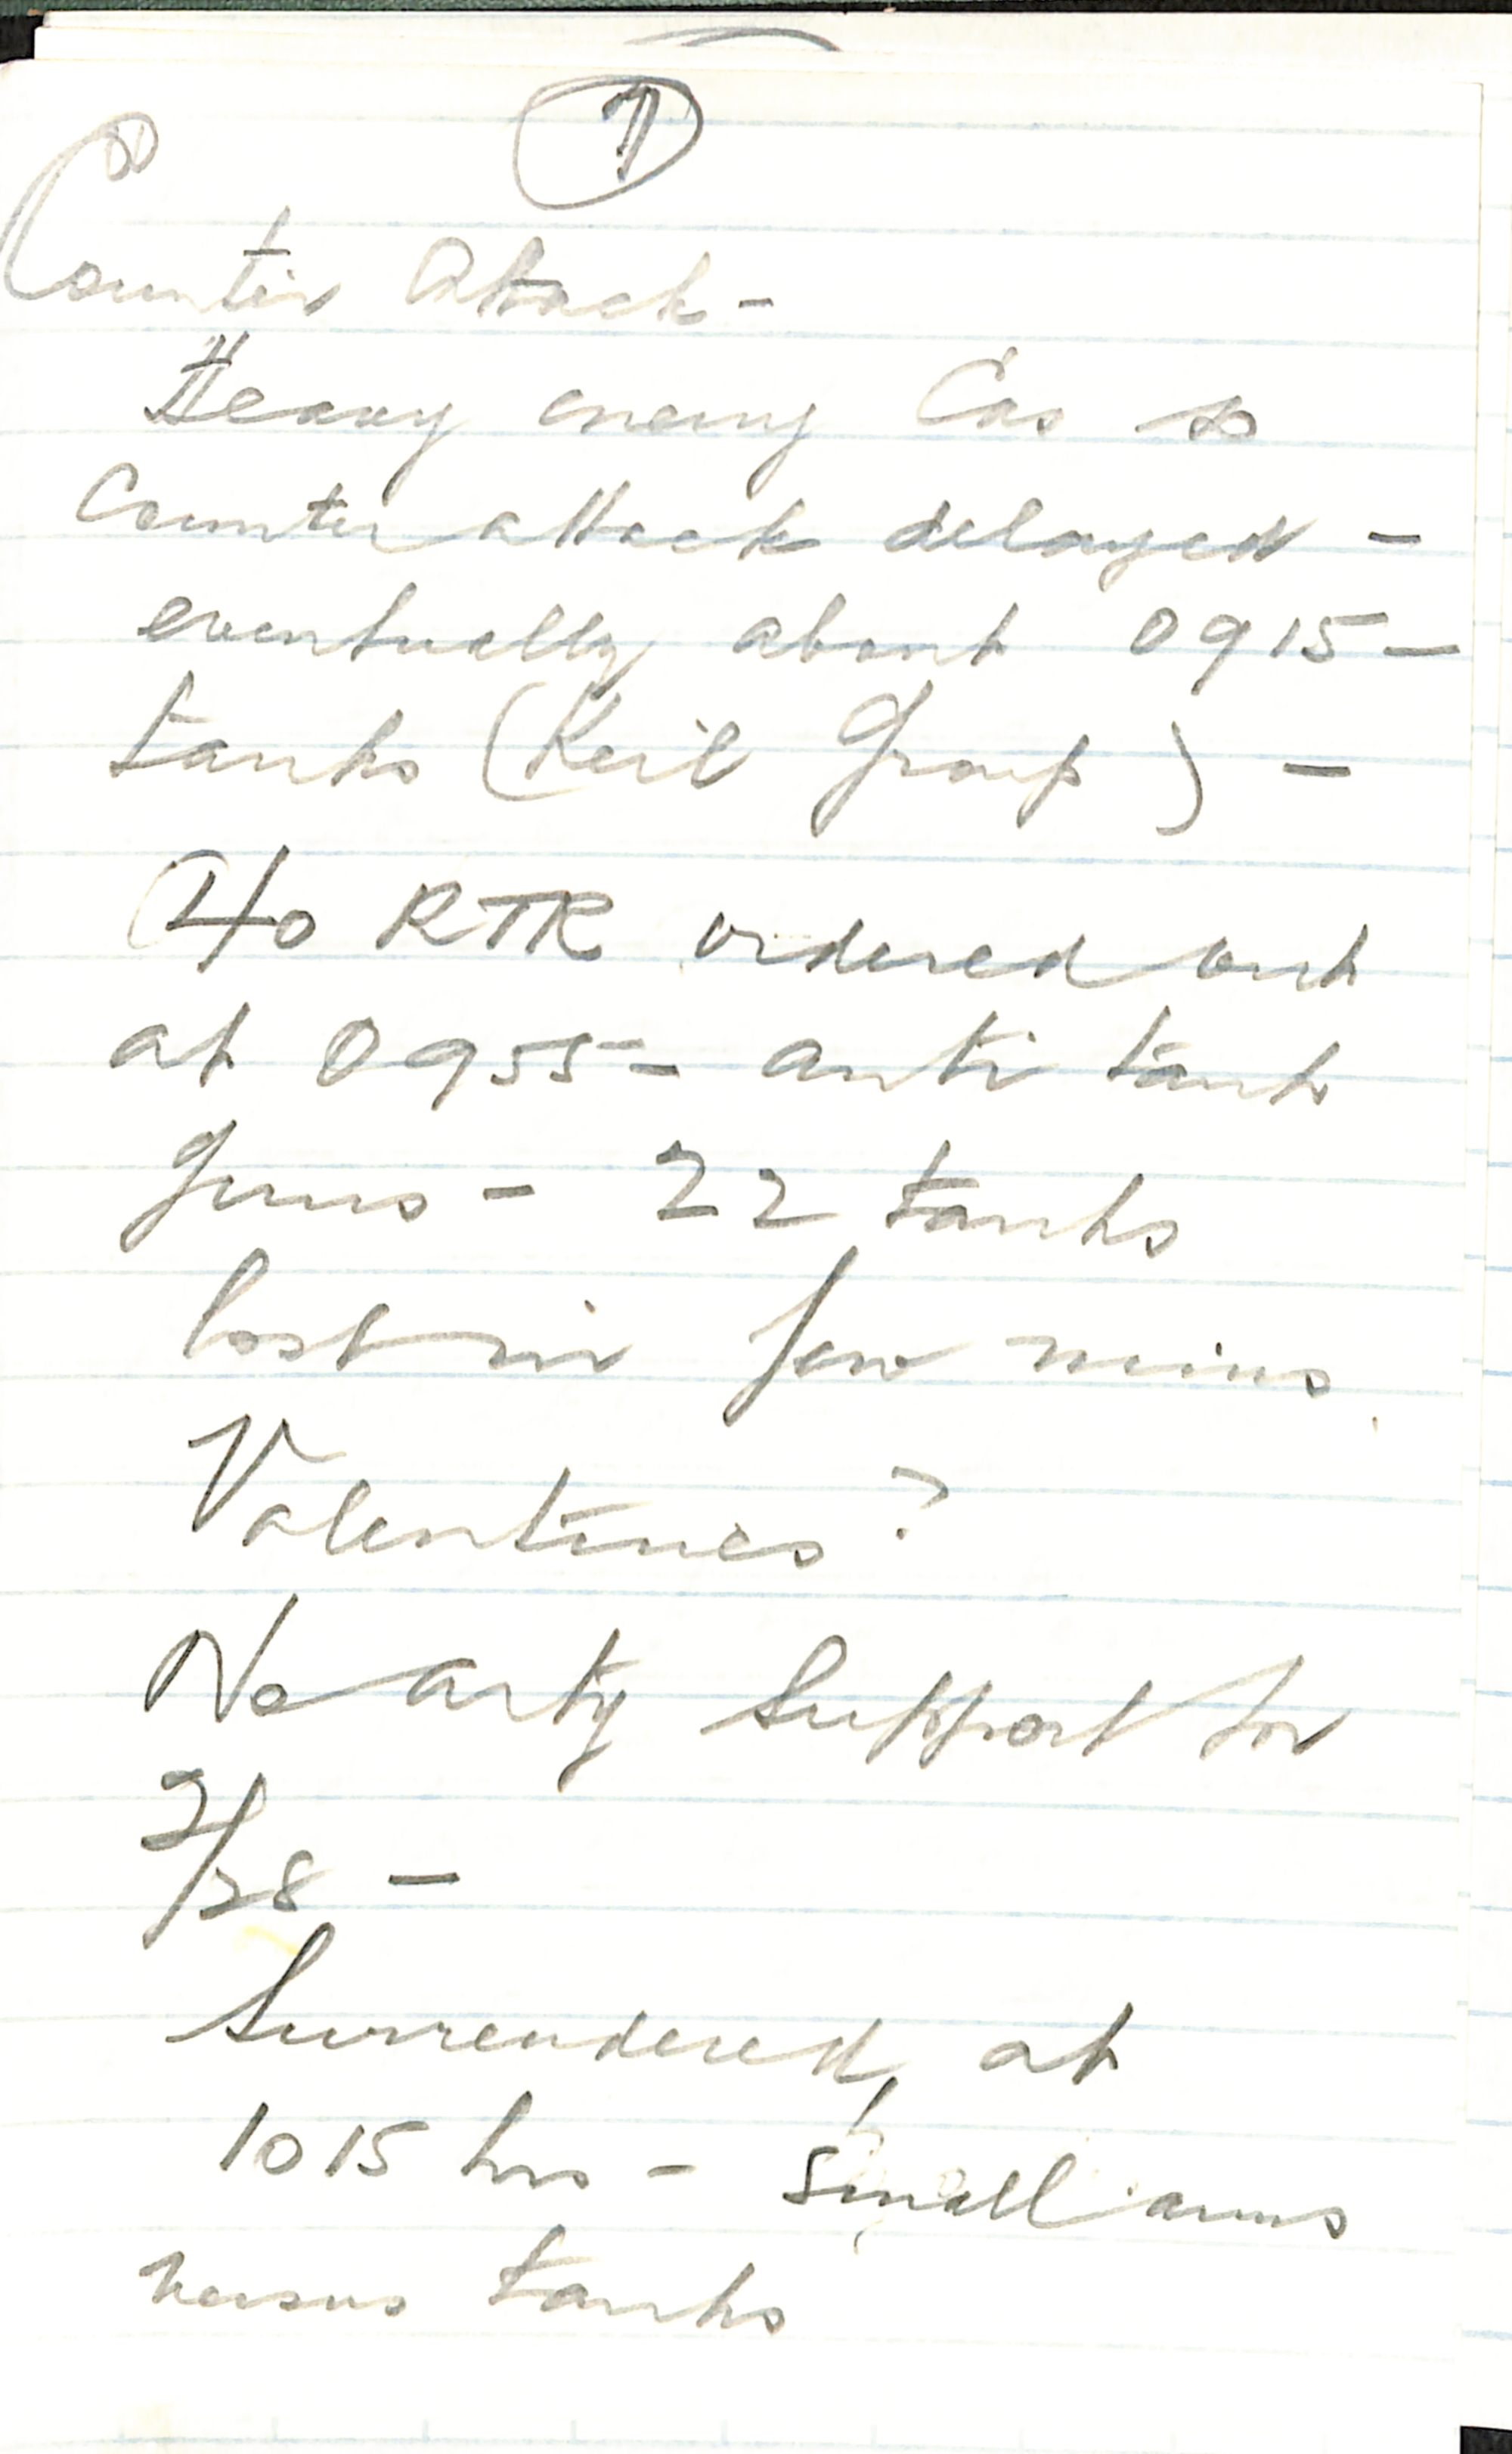 7
Counter Attack -
Heavy enemy Cas so
Counter attack delayed -
eventually about 0915 -
tanks (Keil Group) -
40 RTR ordered out
at 0955 - anti tank
guns - 22 tanks
lost in few mins
Valentines?
No arty support for
2/28 -
Surrendered at
1015 hrs - small arms
versus tanks